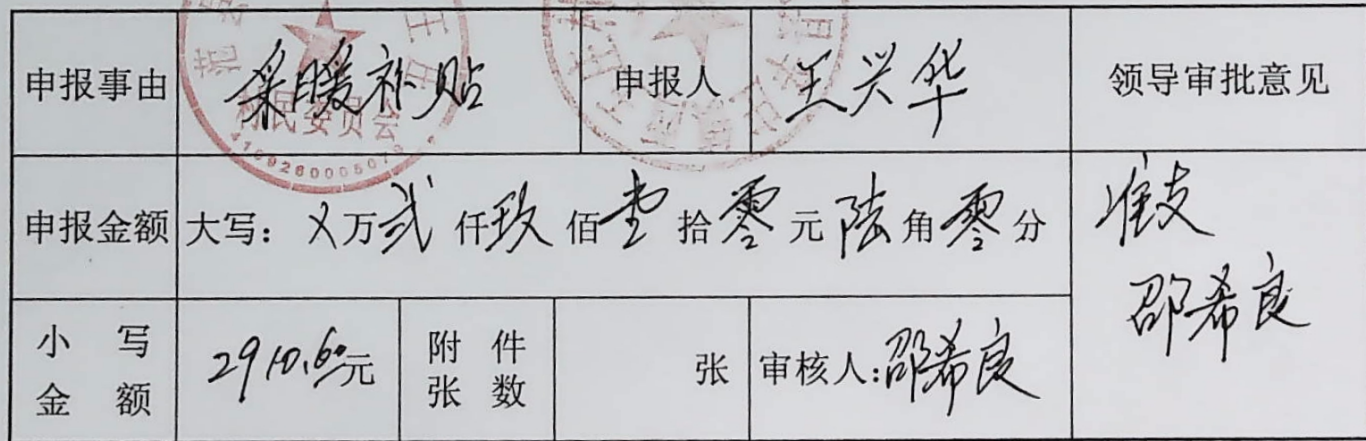 申报事由 采暖补贴 申报人 王兴华 领导审批意见
村民委员会
申报金额 大写：X万贰仟玖佰壹拾零元陆角零分 准支
邵希良
小写金额 2910.60元 附件张数 张 审核人:邵希良